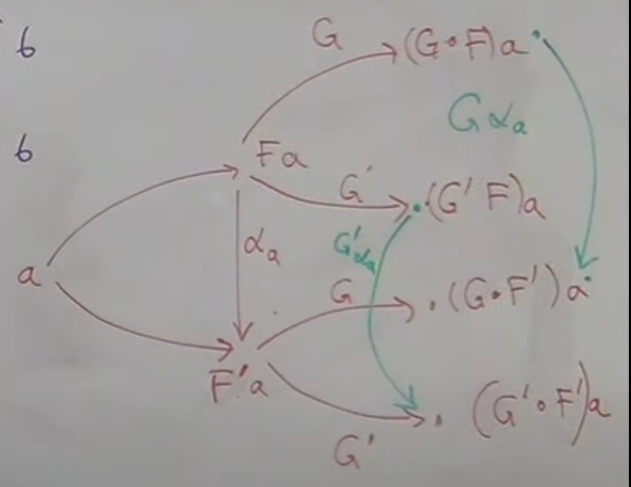 6
G
(G∘F)a
Gαₐ
6
Fa
G′
(G′ F)a
αₐ
G′αₐ
a
G
(G∘F′)a
F′a
(G′∘F′)a
G′